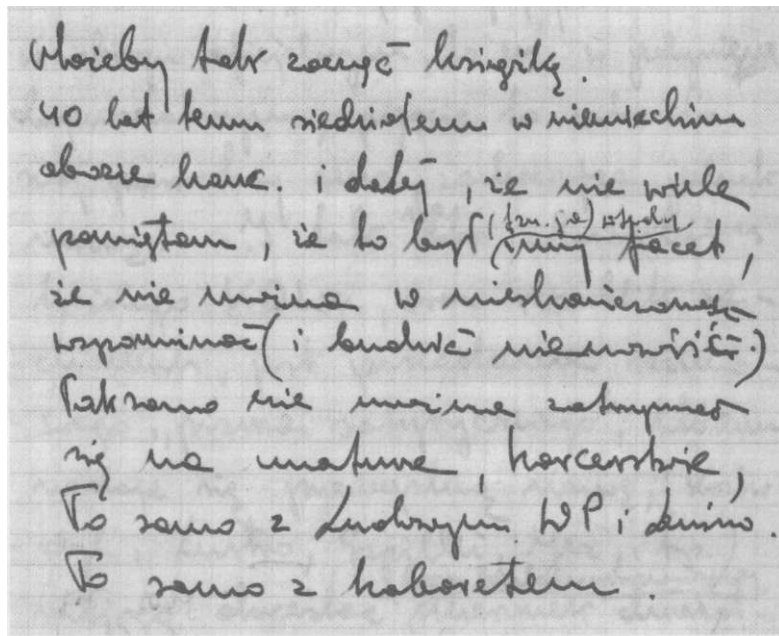 Możeby tak zacząć książkę.
40 lat temu siedziałem w niemieckim
obozie konc. i dalej, że nie wiele
pamiętam, że to był (tzn. ja) wtedy inny facet,
że nie można w nieskończoność
wspominać (i budzić nienawiść.)
Tak samo nie można zatrzymać
się na maturze, harcerstwie,
To samo z Ludowym WP i
To samo z kabaretem.